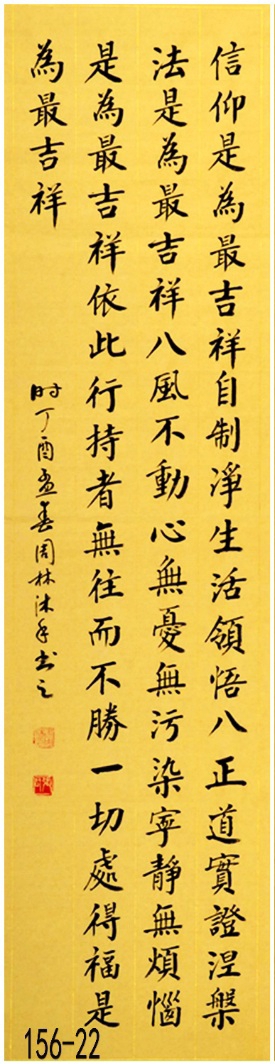 信仰是為最吉祥自制淨生活領悟八正道實證涅槃
法是為最吉祥八風不動心無憂無污染寧靜無煩惱
是為最吉祥依此行持者無往而不勝一切處得福是
為最吉祥
时丁酉孟春周林沐手书之
156-22